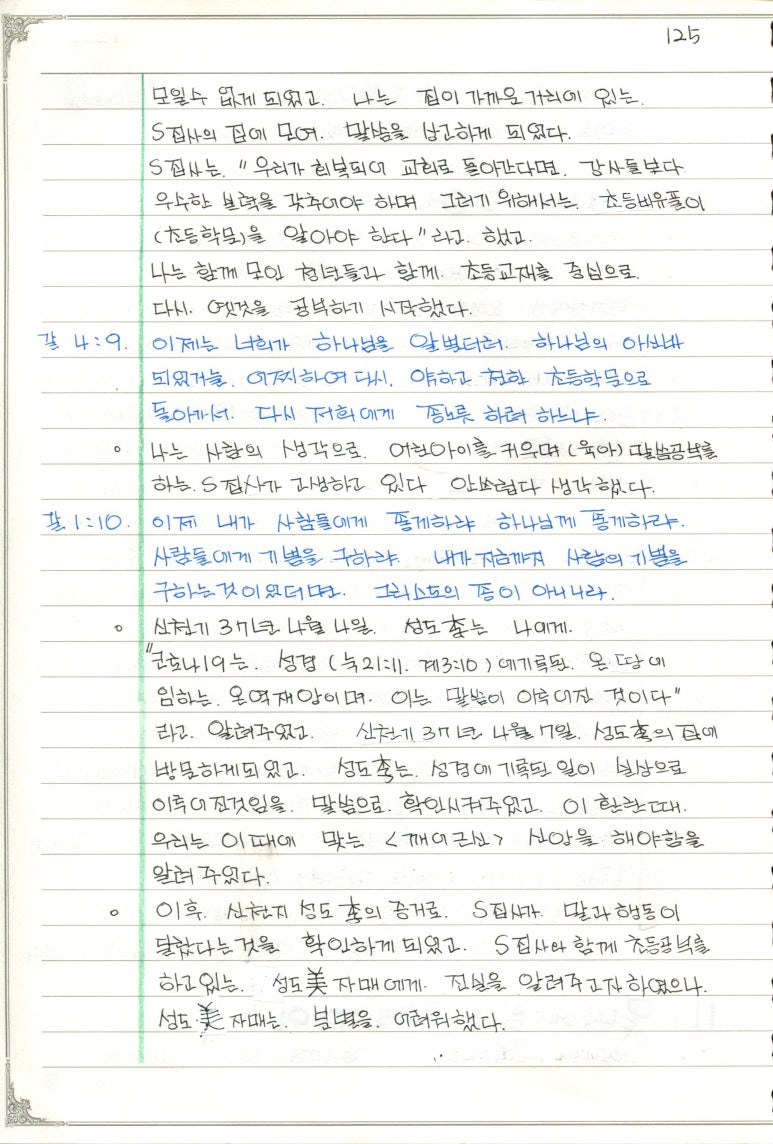 125
모일수 없게 되었고. 나는 집이 가까운 거리에 있는.
S집사의 집에 모여. 말씀을 상고하게 되었다.
S집사는. "우리가 회복되어 교회로 돌아간다면. 강사들보다
우수한 실력을 갖추어야 하며 그러기 위해서는. 초등비유풀이
(초등학문)을 알아야 한다"라고. 했고.
나는 함께 모인 청년들과 함께. 초등교재를 중심으로.
다시. 옛것을 공부하기 시작했다.
갈 4:9. 이제는 너희가 하나님을 알뿐더러. 하나님의 아신바
되었거늘. 어찌하여 다시. 약하고 천한 초등학문으로
돌아가서. 다시 저희에게 종노릇 하려 하느냐.
○ 나는 사람의 생각으로. 어린아이를 키우며(육아) 말씀공부를
하는. S집사가 고생하고 있다 안쓰럽다 생각했다.
갈 1:10. 이제 내가 사람들에게 좋게하랴 하나님께 좋게하랴.
사람들에게 기쁨을 구하랴. 내가 지금까지 사람의 기쁨을
구하는것이었더면. 그리스도의 종이 아니니라.
○ 신천기 37년 4월 4일. 성도 李는 나에게.
"코로나19는. 성경 (눅21:11. 계3:10) 에기록된. 온 땅에
임하는. 온역재앙이며. 이는 말씀이 이루어진 것이다"
라고. 알려주었고. 신천기 37년 4월 7일. 성도李의 집에
방문하게되었고. 성도李는. 성경에 기록된 일이 실상으로
이루어진것임을. 말씀으로. 확인시켜주었고. 이 환란때.
우리는 이때에 맞는 <깨어근신> 신앙을 해야함을
알려 주었다.
○ 이후. 신천지 성도 李의 증거로. S집사가. 말과 행동이
달랐다는것을 확인하게 되었고. S집사와 함께 초등공부를
하고있는. 성도美 자매에게. 진실을 알려주고자 하였으나.
성도 美 자매는. 분별을. 어려워했다.